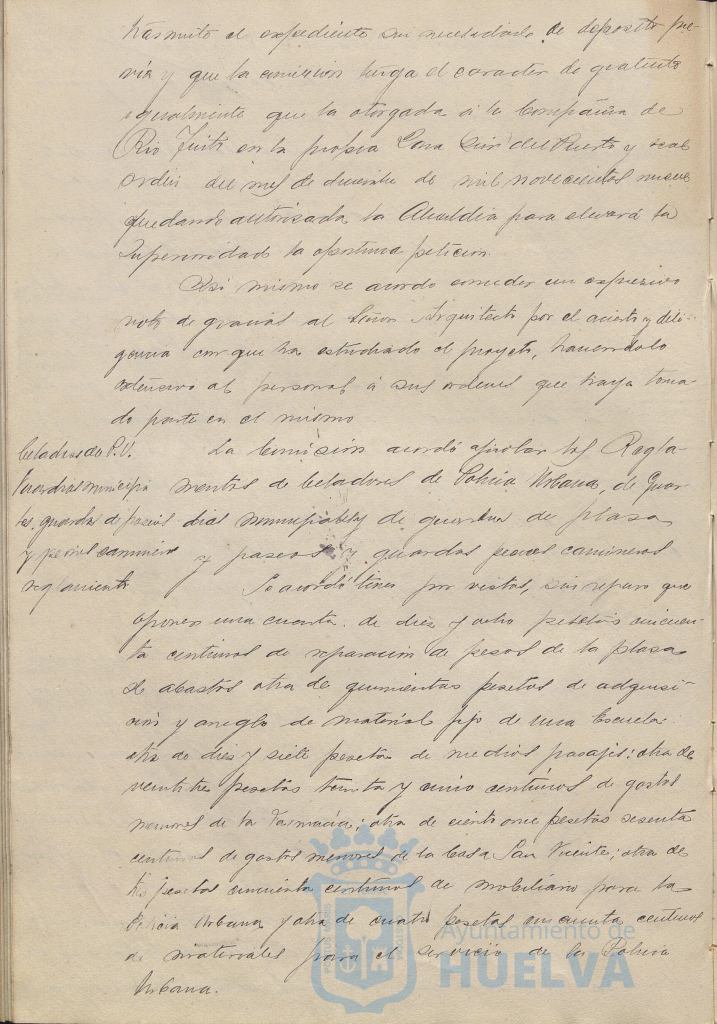 trasmite el expediente sin necesidad de deposito pre-
vio y que la concesion tenga el caracter de gratuito
igualmente que la otorgada á la Compañia de
Rio Tinto en la propia Zona del Puerto y Real
orden del mes de diciembre de mil novecientos nueve
quedando autorizada la Alcaldia para elevar á la
Superioridad la oportuna peticion.
Asi mismo se acordo conceder un expresivo
voto de gracias al Señor Arquitecto por el acierto y dili-
gencia con que ha estudiado el proyecto, haciendolo
extensivo al personal á sus ordenes que haya toma-
do parte en el mismo
Celadores de P.U.
Guardias municipa
les, guardas de paseos
y peones camineros
reglamento
La Comisión acordó aprobar los Regla-
mentos de Celadores de Policia Urbana, de Guar-
dias municipales, de guardas de plazas
y paseos y guardas peones camineros
Se acordó tener por vistas, sin reparo que
oponer una cuenta de diez y ocho pesetas cincuen-
ta centimos de reparacion de pesos de la plaza
de abastos otra de quinientas pesetas de adquisi-
cion y arreglo de material fijo de una Escuela:
otra de diez y siete pesetas de medios pasajes: otra de
veintitres pesetas treinta y cinco centimos de gastos
menores de la Farmacia; otra de ciento once pesetas sesenta
centimos de gastos menores de la Casa San Vicente; otra de
tres pesetas cincuenta centimos de mobiliario para la
Policia Urbana y otra de cuatro pesetas cincuenta centimos
de materiales para el servicio de la Policia
Urbana.
Ayuntamiento de
HUELVA